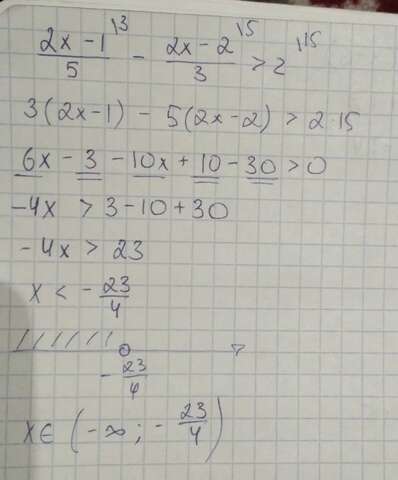 (2x - 1)/5 \3 - (2x - 2)/3 \5 > 2 \15
3(2x-1) - 5(2x-2) > 2·15
6x - 3 - 10x + 10 - 30 > 0
-4x > 3 - 10 + 30
-4x > 23
x < - 23/4
- 23/4
x ∈ (-∞; - 23/4)